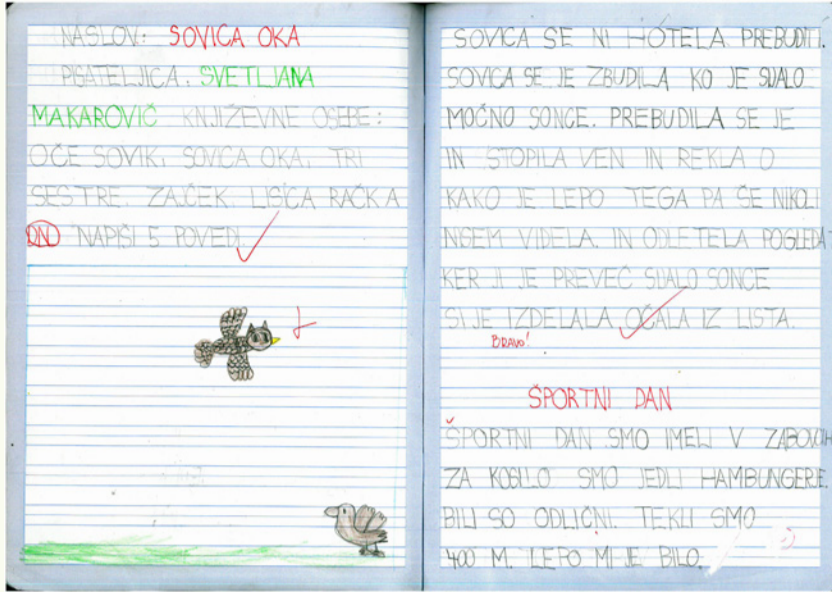 NASLOV: SOVICA OKA
PISATELJICA: SVETLJANA
MAKAROVIČ KNJIŽEVNE OSEBE:
OČE SOVIK, SOVICA OKA, TRI
SESTRE, ZAJČEK, LISICA RAČKA
DN NAPIŠI 5 POVEDI
SOVICA SE NI HOTELA PREBUDITI.
SOVICA SE JE ZBUDILA KO JE SIJALO
MOČNO SONCE. PREBUDILA SE JE
IN STOPILA VEN IN REKLA O
KAKO JE LEPO TEGA PA ŠE NIKOLI
NISEM VIDELA. IN ODLETELA POGLEDAT
KER JI JE PREVEČ SIJALO SONCE
SI JE IZDELALA OČALA IZ LISTA.
BRAVO!
ŠPORTNI DAN
ŠPORTNI DAN SMO IMELI V
ZA KOSILO SMO JEDLI HAMBUNGERJE.
BILI SO ODLIČNI. TEKLI SMO
400 M. LEPO MI JE BILO.